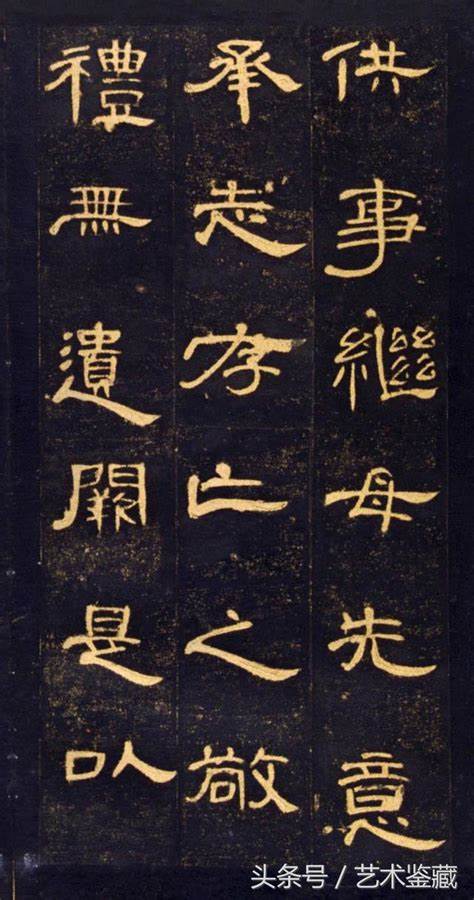 供事繼母先意
承志存亡之敬
禮無遺闕是以
头条号／艺术鉴藏